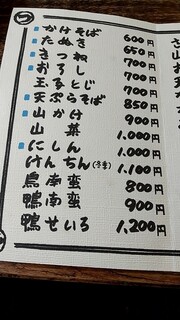 つ
かけそば 600円
たぬき 650円
きつね 700円
おろし 700円
玉子とじ 700円
天ぷらそば 850円
山かけ 900円
山菜 1,000円
にしん 1,000円
けんちん(冬季) 1,100円
鳥南蛮 800円
鴨南蛮 900円
鴨せいろ 1,200円